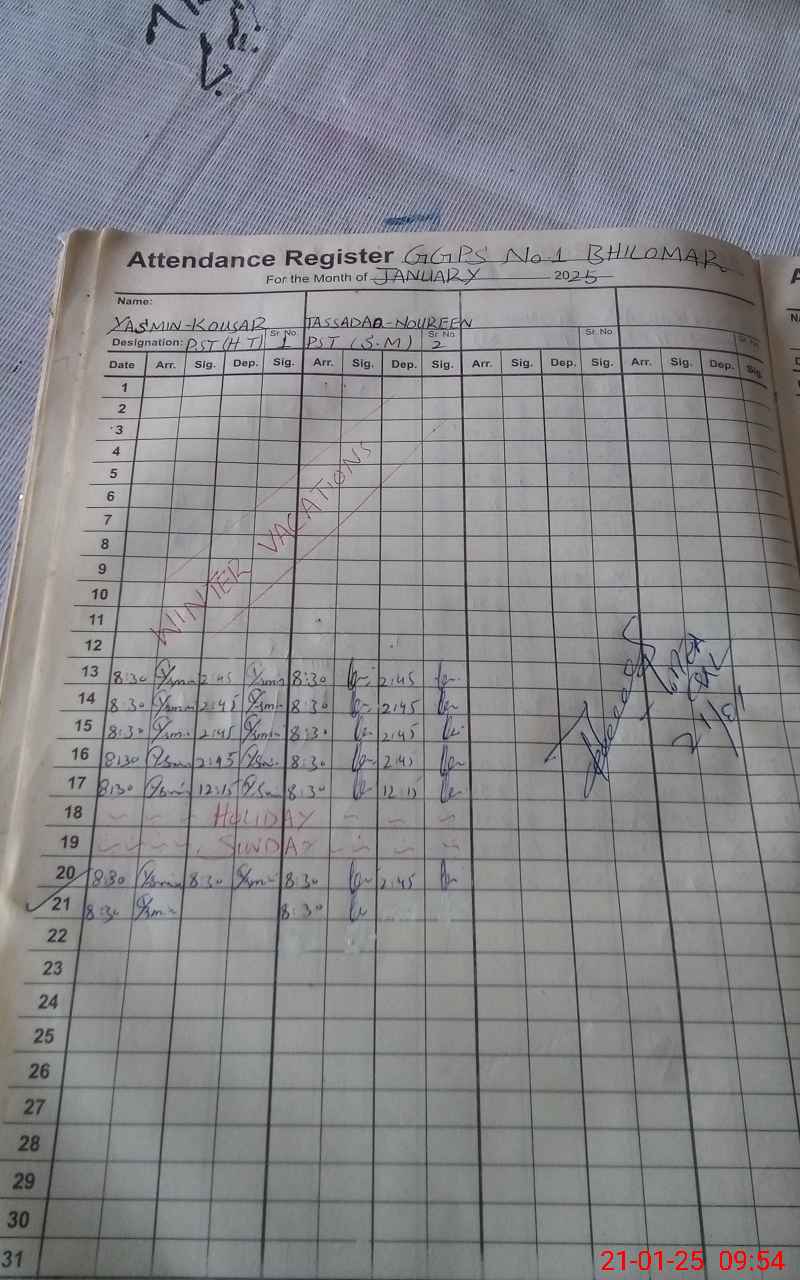 Attendance Register GGPS No.1 BHILOMAR
For the Month of JANUARY 2025
Name:
YASMIN-KOUSAR TASSADAQ-NOUREEN
Designation: PST (H T) Sr. No. 1 PST (S.M) Sr. No. 2 Sr. No. Sr. No.
Date Arr. Sig. Dep. Sig. Arr. Sig. Dep. Sig. Arr. Sig. Dep. Sig. Arr. Sig. Dep. Sig.
1
2
3
4
5
6
7
8
9
10
11
12
WINTER VACATIONS
13 8:30 2:45 8:30 2:45
14 8:30 2:45 8:30 2:45
15 8:30 2:45 8:30 2:45
16 8:30 2:45 8:30 2:45
17 8:30 12:15 8:30 12:15
18 HOLIDAY
19 SUNDAY
20 8:30 8:30 8:30 2:45
21 8:30 8:30
22
23
24
25
26
27
28
29
30
31
21-01-25 09:54